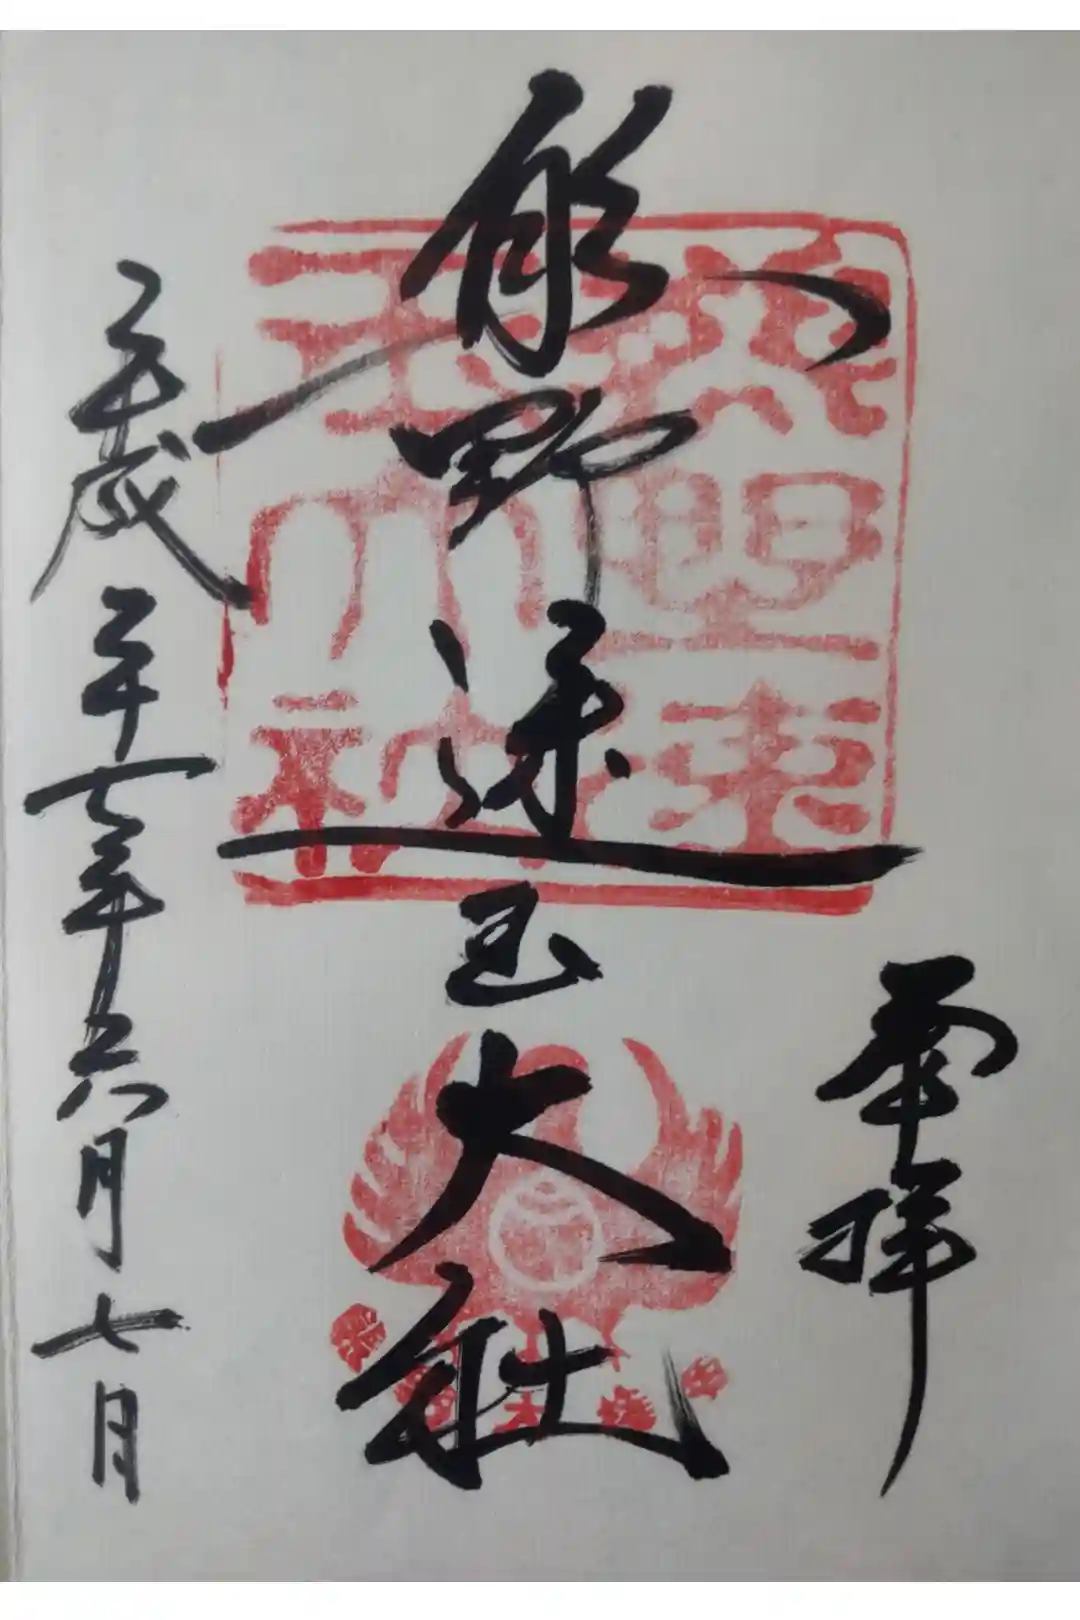 奉拝
熊野速玉大社
平成二十七年六月七日
熊野速
玉大社